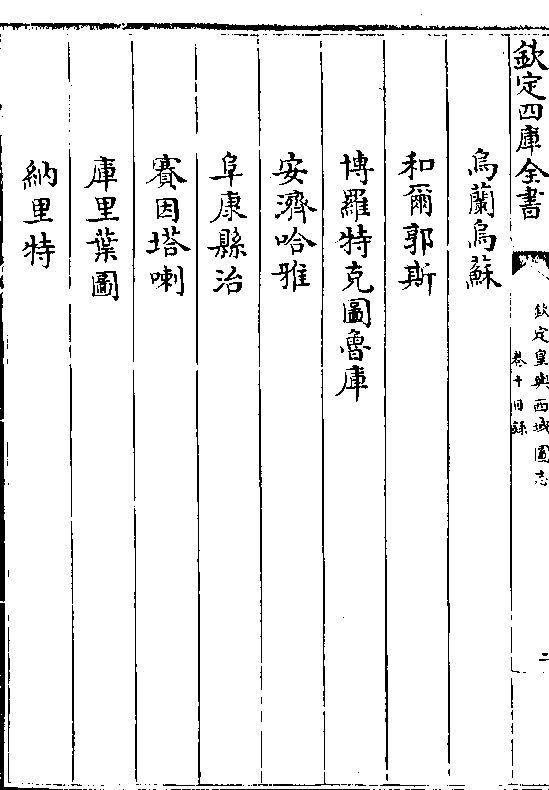 欽定四庫全書
欽定皇輿西域圖志
卷十目錄
二
烏蘭烏蘇
和爾郭斯
博羅特克圖魯庫
安濟哈雅
阜康縣治
賽因塔喇
庫里葉圖
納里特